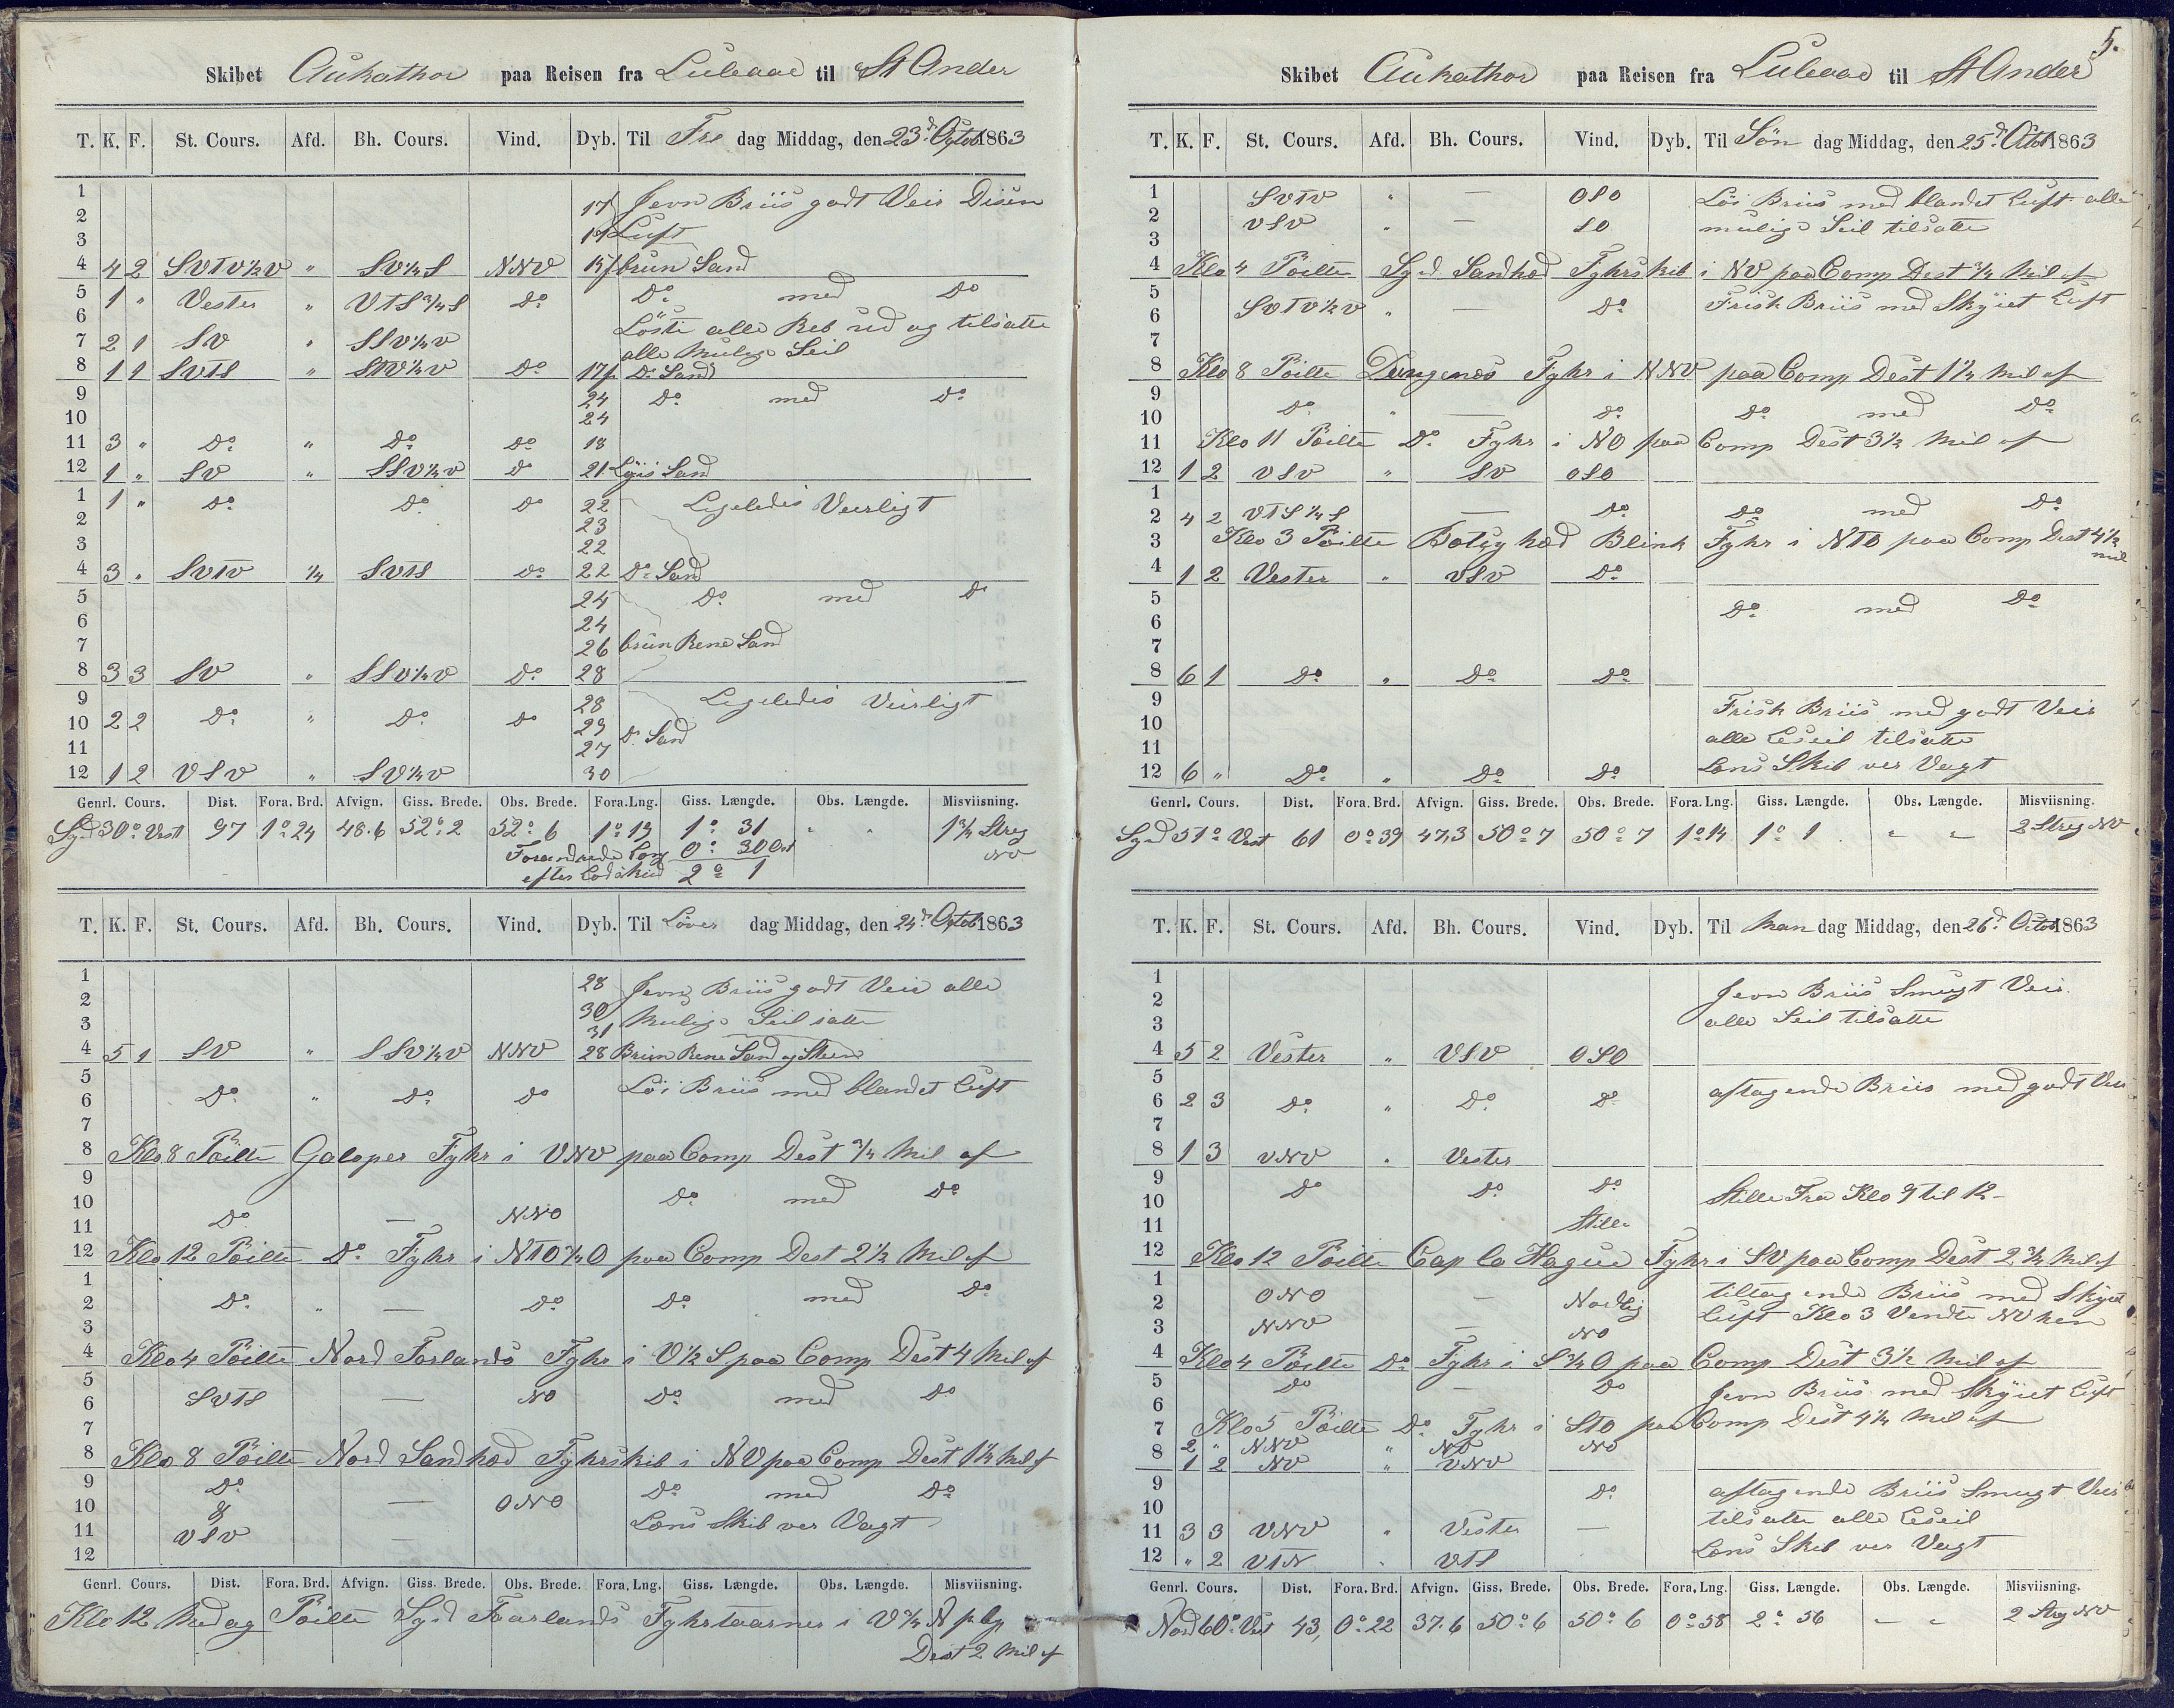 Skibet Aukathor paa Reisen fra Luleaae til St Ander
T. K. F. St. Cours. Afd. Bh. Cours. Vind. Dyb. Til Fre dag Middag, den 23d Octob 1863
1 17 Jevn Briis godt Veir Disen
2 Luft
3 19
4 4 2 SVTV½V " SV½S NNV 15 brun Sand
5 1 " Vester " VTS¾S Do Do med Do
6 Löste alle Reb ud og tilsatte
7 2 1 SV " SSV½V alle Mulige Seil
8 1 1 SVTS " Do 17 Do Sand
9 24 Do med Do
10 24
11 3 " Do " Do Do 18
12 1 " SV " SSV½V Do 21 Lyis Sand
1 1 " Do Do Do 22 Ligeledes Veirligt
2 23
3 22
4 3 " SVTV ¼ SVTS Do 22 Do Sand
5 24 Do med Do
6 24
7 26 brun Rene Sand
8 3 3 SV " SSV½V Do 28
9 28 Ligeledes Veirligt
10 2 2 Do " Do Do 29 Do Sand
11 27
12 1 2 VSV " SV½V 30
Genrl. Cours. Dist. Fora. Brd. Afvign. Giss. Brede. Obs. Brede. Fora. Lng. Giss. Længde. Obs. Længde. Misviisning.
Syd 30° Vest 97 1°24 48.6 52°2 52°6 1°19 1°31 " " 1¾ Streg
Forandrede Leng 0° 30 Ost NV
efter Lodskud 2° 1
T. K. F. St. Cours. Afd. Bh. Cours. Vind. Dyb. Til Löver dag Middag, den 24d Octob 1863
1 28 Jevn Briis godt Veir alle
2 30 Mulige Seil satte
3 31
4 5 1 SV " SSV½V NNV 28 Brun Rene Sand og Steen
5 Löi Briis med blandet Luft
6 Do " Do Do
7
8 Klo 8 Peilte Galoper Fyhr i VNV paa Comp Dest ¾ Mil af
9
10 Do med Do
11 Do — NNO
12 Klo 12 Peilte Do Fyhr i NTO¾O paa Comp Dest 2½ Mil af
1
2 Do " — Do Do med Do
3
4 Klo 4 Peilte Nord Forlands Fyhr i V½S paa Comp Dest 4 Mil af
5
6 SVTS — NO Do med Do
7
8 Klo 8 Peilte Nord Sandhod Fyhrskib i NV paa Comp Dest 1½ Mil af
9 Do Do med Do
10 & — ONO
11 VSV Læns Skib ver Vagt
12 —
Genrl. Cours. Dist. Fora. Brd. Afvign. Giss. Brede. Obs. Brede. Fora, Lng. Giss. Længde. Obs. Længde. Misviisning.
Klo 12 Medag Peilte Syd Foarlands Fyhrtaarner i V¾N
Dest 2 Mil af
5.
Skibet Aukathor paa Reisen fra Luleaae til St Ander
T. K. F. St. Cours. Afd. Bh. Cours. Vind. Dyb. Til Sön dag Middag, den 25d Octob 1863
1 SVTV " — OSO Löi Briis med blandet Luft alle
2 VSV " — SO mulige Seil tilsatte
3
4 Klo 4 Peilte Syd Sandhod Fyhrskib i NV paa Comp Dest ¾ Mil af
5 Frisk Briis med Skyiet Luft
6 SVTV½V " — Do
7
8 Klo 8 Peilte Dungenes Fyhr i NNV paa Comp Dest 1½ Mil af
9
10 Do " — Do Do med Do
11 Klo 11 Peilte Do Fyhr i NO paa Comp Dest 3½ Mil af
12 1 2 VSV " SV OSO
1
2 4 2 VTS¼S — Do Do med Do
3 Klo 3 Peilte Blink Fyhr i NTO paa Comp Dest 4½
mil
4 1 2 Vester " VSV Do
5 Do med Do
6
7
8 6 1 Do " Do Do
9 Frisk Briis med godt Veir
10 alle Leseil tilsatte
11
12 6 " Do " Do Do Læns Skib ver Vagt
Genrl. Cours. Dist. Fora. Brd. Afvign. Giss. Brede. Obs. Brede. Fora. Lng. Giss. Længde. Obs. Længde. Misviisning.
Syd 51° Vest 61 0°39 47,3 50°7 50°7 1°14 1° 1 " " 2 Streg NV
T. K. F. St. Cours. Afd. Bh. Cours. Vind. Dyb. Til Man dag Middag, den 26d Octob 1863
1 Jevn Briis Smugt Veir
2
3 alle Seil tilsatte
4 5 2 Vester " VSV OSO
5 aftagende Briis med godt Veir
6 2 3 Do " Do Do
7
8 1 3 VNV " Vester
9 Do Do Do
10 Stille Fra Klo 9 til 12 –
11 Stille
12 Klo 12 Peilte Cap la Hague Fyhr i SV paa Comp Dest 2¾ Mil af
1 tiltagende Briis med Skyet
2 ONO — Nordlig
3 NNV — NO Luft Klo 3 Vendte NV hen
4 Klo 4 Peilte Do Fyhr i S¾O paa Comp Dest 3½ Mil af
5 Do — Do Jevn Briis med Skyiet Luft
6
7 Klo 5 Peilte Do Fyhr i STO paa Comp Dest 4¼ Mil af
8 2 " NNV " NV NO
1 2 NV " VNV
9 Do aftagende Briis Smugt Veir
10
11 3 3 VNV " Vester — tilsatte alle Leseil
12 " 2 VTN " VTS Læns Skib ver Vagt
Genrl. Cours. Dist. Fora. Brd. Afvign. Giss. Brede. Obs. Brede. Fora, Lng. Giss. Længde. Obs. Længde. Misviisning.
Nord 60° Vest 43, 0°22 37.6 50°6 50°6 0°58 2° 56 " " 2 Streg NV